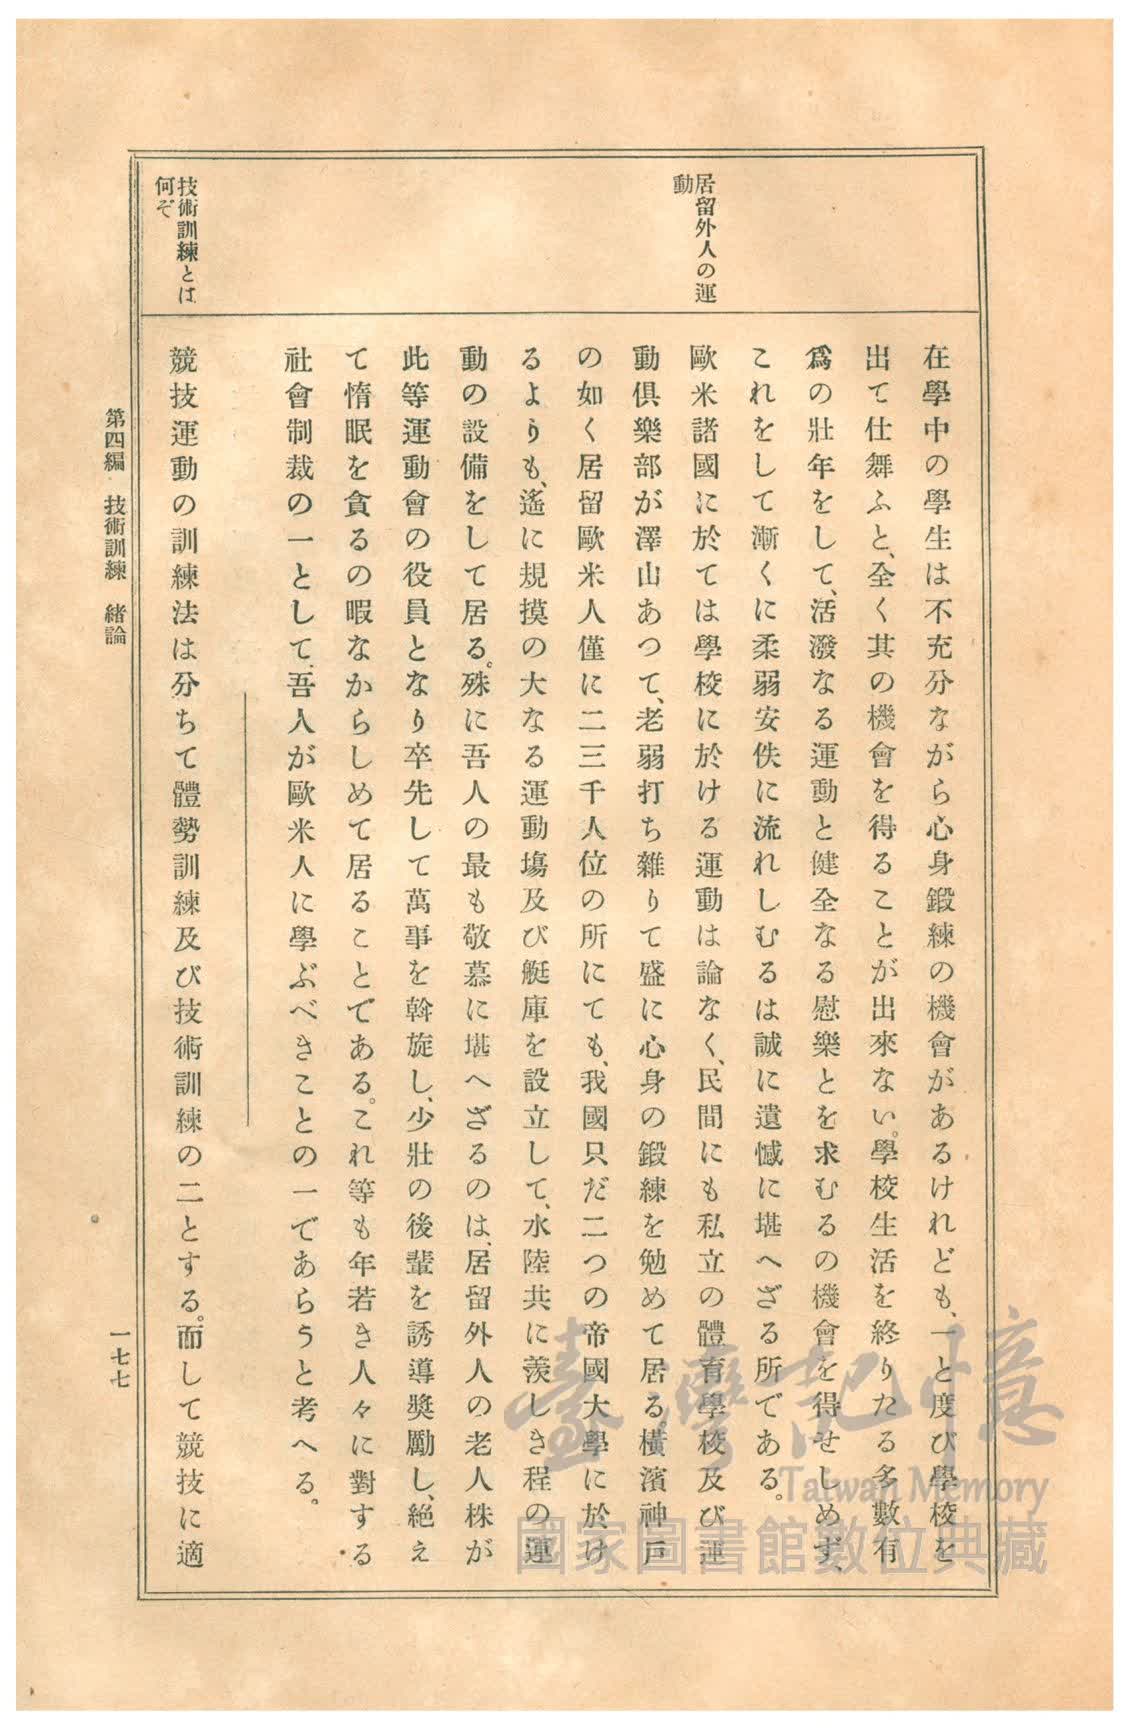 居留外人の運
動
在學中の學生は不充分ながら心身鍛練の機會があるけれども、一と度び學校を
出て仕舞ふと、全く其の機會を得ることが出來ない。學校生活を終りたる多數有
爲の壯年をして、活潑なる運動と健全なる慰樂とを求むるの機會を得せしめず、
これをして漸くに柔弱安佚に流れしむるは誠に遺憾に堪へざる所である。
歐米諸國に於ては學校に於ける運動は論なく、民間にも私立の體育學校及び運
動俱樂部が澤山あつて、老弱打ち雜りて盛に心身の鍛練を勉めて居る。橫濱神戶
の如く居留歐米人僅に二三千人位の所にても、我國只だ二つの帝國大學に於け
るよりも、遙に規摸の大なる運動塲及び艇庫を設立して、水陸共に羨しき程の運
動の設備をして居る。殊に吾人の最も敬慕に堪へざるのは、居留外人の老人株が
此等運動會の役員となり卒先して萬事を斡旋し、少壯の後輩を誘導奬勵し、絕え
て惰眠を貪るの暇なからしめて居ることである。これ等も年若き人々に對する
社會制裁の一として、吾人が歐米人に學ぶべきことの一であらうと考へる。
技術訓練とは
何ぞ
競技運動の訓練法は分ちて體勢訓練及び技術訓練の二とする。而して競技に適
第四編　技術訓練　緒論
一七七
臺灣記憶
Taiwan Memory
國家圖書館數位典藏